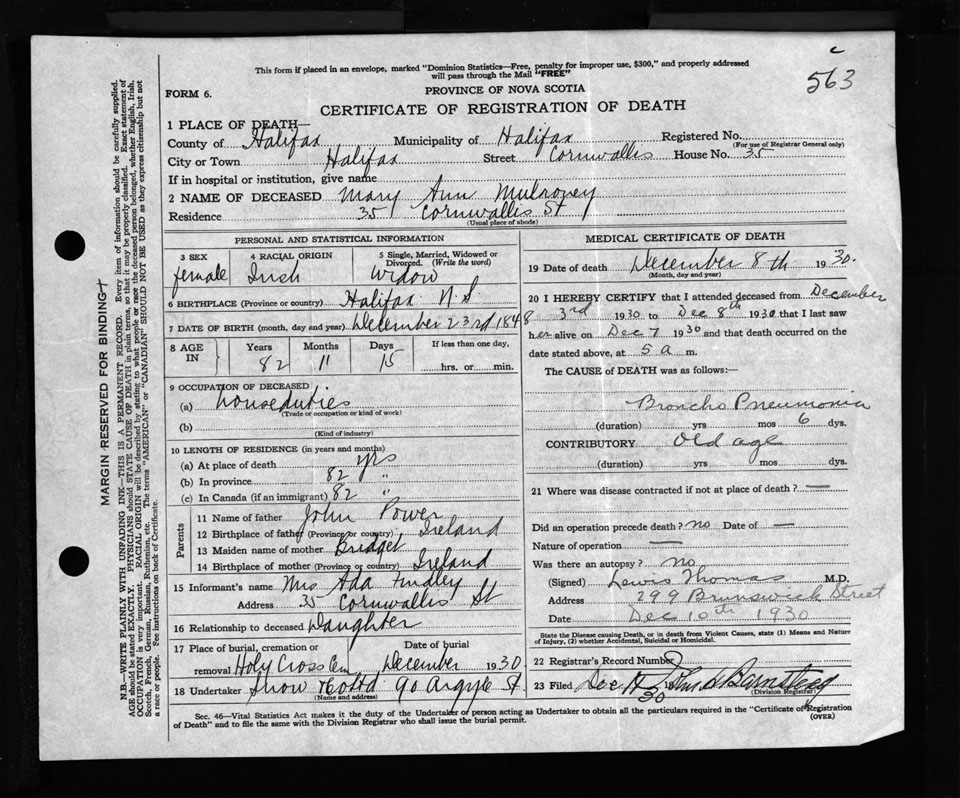 c
563
This form if placed in an envelope, marked "Dominion Statistics—Free, penalty for improper use, $300," and properly addressed
will pass through the Mail "FREE"
FORM 6.
PROVINCE OF NOVA SCOTIA
CERTIFICATE OF REGISTRATION OF DEATH
1 PLACE OF DEATH—
County of Halifax Municipality of Halifax Registered No.
(For use of Registrar General only)
City or Town Halifax Street Cornwallis House No. 35
If in hospital or institution, give name
2 NAME OF DECEASED Mary Ann Mulroney
Residence 35 Cornwallis St
(Usual place of abode)
PERSONAL AND STATISTICAL INFORMATION
3 SEX 4 RACIAL ORIGIN 5 Single, Married, Widowed or
Divorced. (Write the word)
female Irish Widow
6 BIRTHPLACE (Province or country) Halifax N.S
7 DATE OF BIRTH (month, day and year) December 23rd 1848
8 AGE IN Years Months Days If less than one day,
82 11 15 hrs. or min.
9 OCCUPATION OF DECEASED
(a) houseduties
(Trade or occupation or kind of work)
(b)
(Kind of industry)
10 LENGTH OF RESIDENCE (in years and months)
(a) At place of death yrs
(b) In province 82 "
(c) In Canada (if an immigrant) 82 "
Parents
11 Name of father John Power
12 Birthplace of father (Province or country) Ireland
13 Maiden name of mother Bridget
14 Birthplace of mother (Province or country) Ireland
15 Informant's name Mrs Ada Findley
Address 35 Cornwallis St
16 Relationship to deceased Daughter
17 Place of burial, cremation or Date of burial
removal Holy Cross Cem December 1930
18 Undertaker Snow & Co Ltd 90 Argyle St
(Name and address)
MEDICAL CERTIFICATE OF DEATH
19 Date of death December 8th 1930.
(Month, day and year)
20 I HEREBY CERTIFY that I attended deceased from December
3rd 1930 to Dec 8th 1930 that I last saw
her alive on Dec 7 1930 and that death occurred on
date stated above, at 5 a m.
The CAUSE of DEATH was as follows:—
Broncho Pneumonia
(duration) yrs mos 6 dys.
CONTRIBUTORY Old age
(duration) yrs mos dys.
21 Where was disease contracted if not at place of death? —
Did an operation precede death? no Date of —
Nature of operation —
Was there an autopsy? no
(Signed) Lewis Thomas M.D.
Address 299 Brunswick Street
Date Dec 10th 1930
State the Disease causing Death, or in death from Violent Causes, state (1) Means and Nature
of Injury, (2) whether Accidental, Suicidal or Homicidal.
22 Registrar's Record Number
23 Filed Dec 30 John H Barnstead
(Division Registrar)
Sec. 46—Vital Statistics Act makes it the duty of the Undertaker or person acting as Undertaker to obtain all the particulars required in the "Certificate of Registration
of Death" and to file the same with the Division Registrar who shall issue the burial permit.
(OVER)
MARGIN RESERVED FOR BINDING
N.B.—WRITE PLAINLY WITH UNFADING INK—THIS IS A PERMANENT RECORD. Every item of information should be carefully supplied.
AGE should be stated EXACTLY. PHYSICIANS should STATE CAUSE OF DEATH in plain terms, so that it may be properly classified. Exact statement of
OCCUPATION is very important. RACIAL ORIGIN will be described by stating to what people or race the deceased person belonged, whether English, Irish,
Scotch, French, German, Russian, Ruthenian, etc. The terms "AMERICAN" or "CANADIAN" SHOULD NOT BE USED as they express citizenship but not
a race or people. See instructions on back of Certificate.